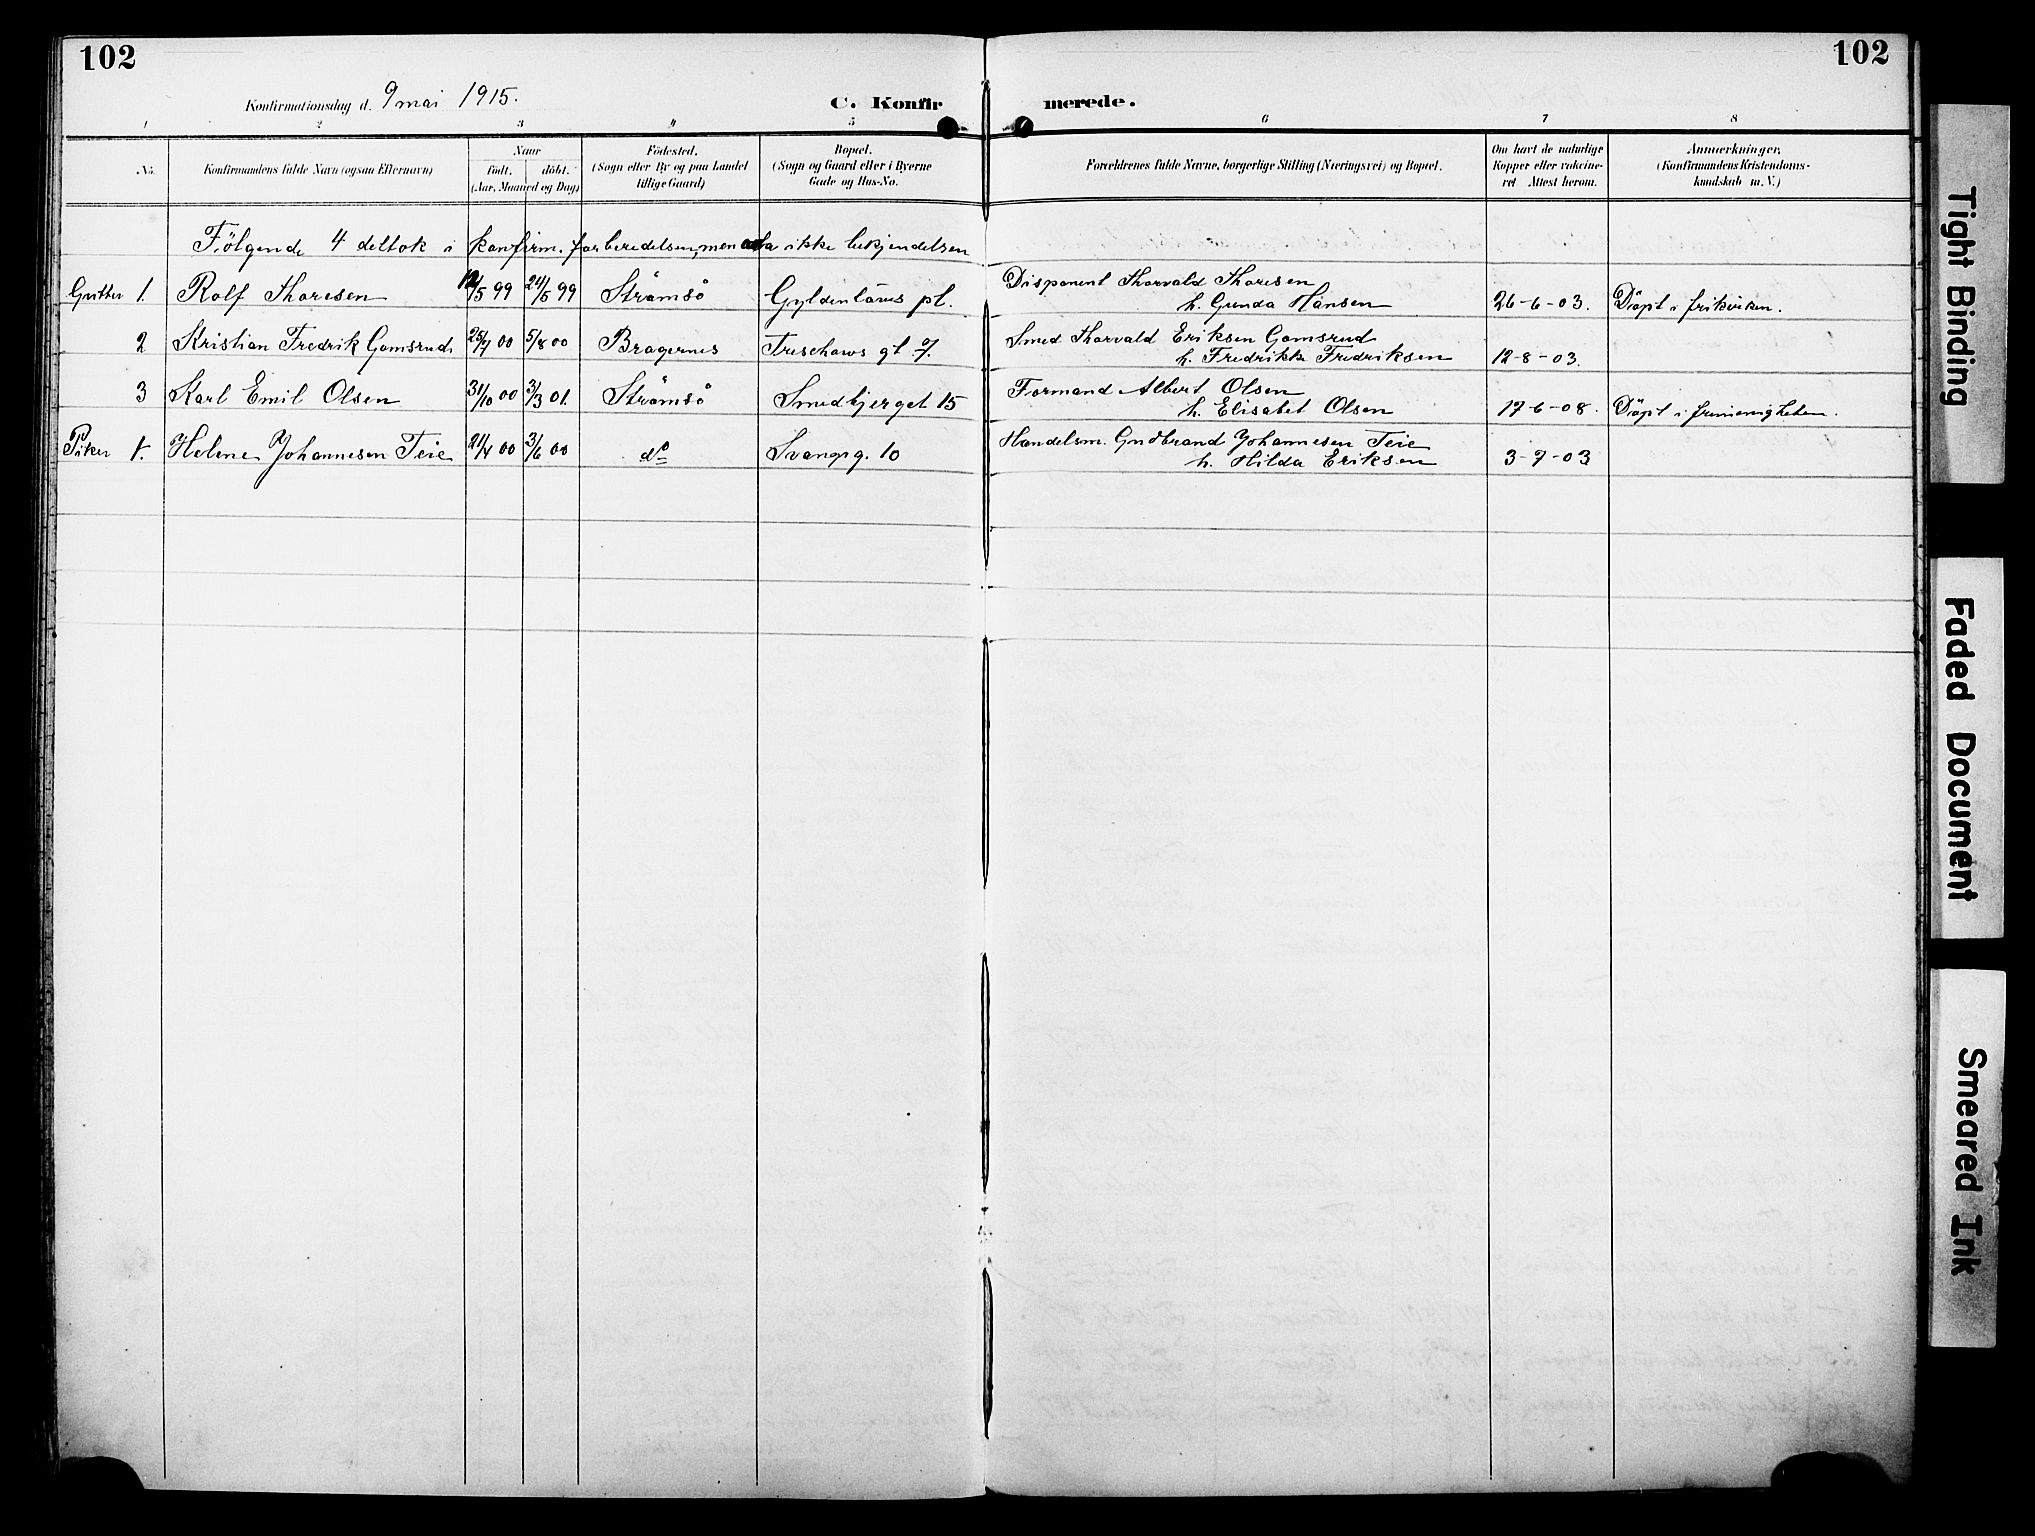 102
102
Konfirmationsdag d. 9 mai 1915.
C. Konfirmerede.
1 2 3 4 5 6 7 8
No.
Konfirmandens fulde Navn (ogsaa Efternavn)
Naar
født. døbt.
(Aar, Maaned og Dag)
Fødested.
(Sogn eller By og paa Landet
tillige Gaard)
Bopæl.
(Sogn og Gaard eller i Byerne
Gade og Hus-No.
Forældrenes fulde Navne, borgerlige Stilling (Næringsvei) og Bopæl.
Om havt de naturlige
Kopper eller vakcine-
ret Attest herom.
Anmærkninger,
(Konfirmandens Kristendoms-
kundskab m. V.)
Følgende 4 deltok i konfirm. forberedelsen, men ikke bekjendelsen
Gutter 1. Rolf Thoresen 12/5 99 24/5 99 Strömsö Gyldenløves pl. Disponent Thorvald Thoresen
h. Gunda Hansen 26-6-03. Döpt i frikirken.
2 Kristian Fredrik Gomsrud 25/7 00 5/8 00 Bragernes Treschows gt 7. Smed Thorvald Eriksen Gomsrud
h. Fredrikke Fredriksen 12-8-03.
3 Karl Emil Olsen 31/10 00 3/3 01. Strömsö Smedbjerget 15 Formand Albert Olsen
h. Elisabet Olsen 17-6-08. Döpt i frimenigheten.
Piker 1. Helene Johannesen Teie 21/4 00 3/6 00 do Svangsg. 10 Handelsm. Gudbrand Johannesen Teie
h. Hilda Eriksen 3-9-03
Tight Binding
Faded Document
Smeared Ink